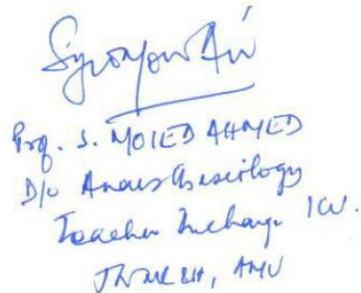 Prof. S. MOIED AHMED
D/o Anaesthesiology
Teacher Incharge ICU.
JNMCH, AMU